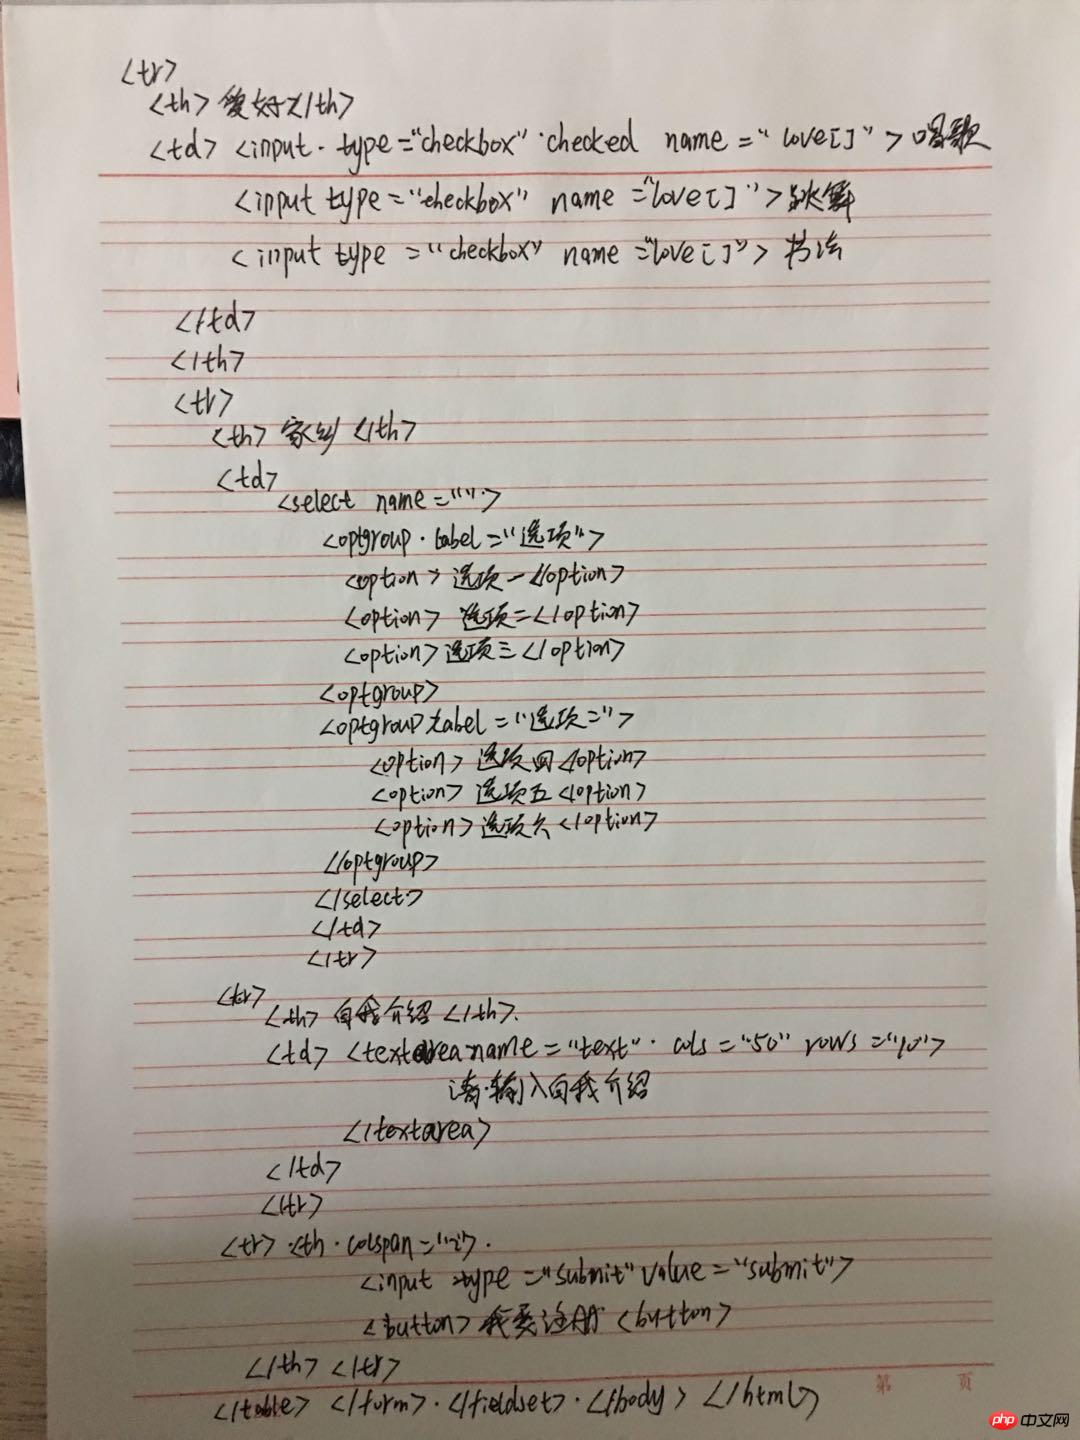 <tr>
<th>爱好</th>
<td> <input type="checkbox" checked name="love[]">唱歌
<input type="checkbox" name="love[]">跳舞
<input type="checkbox" name="love[]">书法
</td>
</th>
<tr>
<th>家乡</th>
<td>
<select name="">
<optgroup label="选项">
<option>选项一</option>
<option>选项二</option>
<option>选项三</option>
<optgroup>
<optgroup label="选项二">
<option>选项四</option>
<option>选项五</option>
<option>选项六</option>
</optgroup>
</select>
</td>
</tr>
<tr>
<th>自我介绍</th>
<td> <textarea name="text" cols="50" rows="10">
请输入自我介绍
</textarea>
</td>
</tr>
<tr> <th colspan="2">
<input type="submit" value="submit">
<button>我要注册<button>
</th> </tr>
</table> </form> </fieldset> </body> </html>
第 页
php 中文网